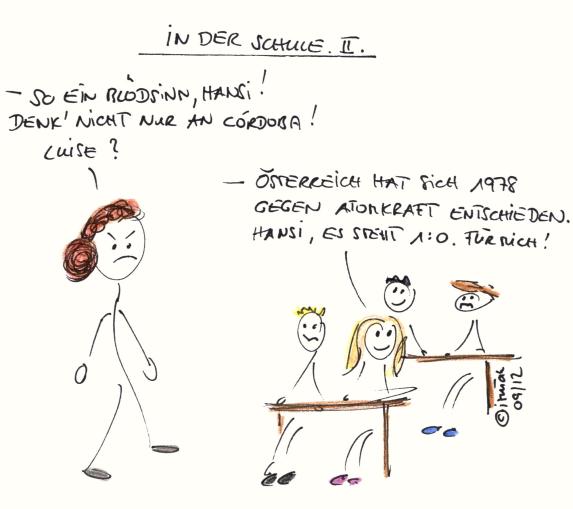 IN DER SCHULE. II.
- SO EIN BLÖDSINN, HANSI!
DENK' NICHT NUR AN CÓRDOBA!
LUISE?
- ÖSTERREICH HAT SICH 1978
GEGEN ATOMKRAFT ENTSCHIEDEN.
HANSI, ES STEHT 1:0. FÜR MICH!
09/12